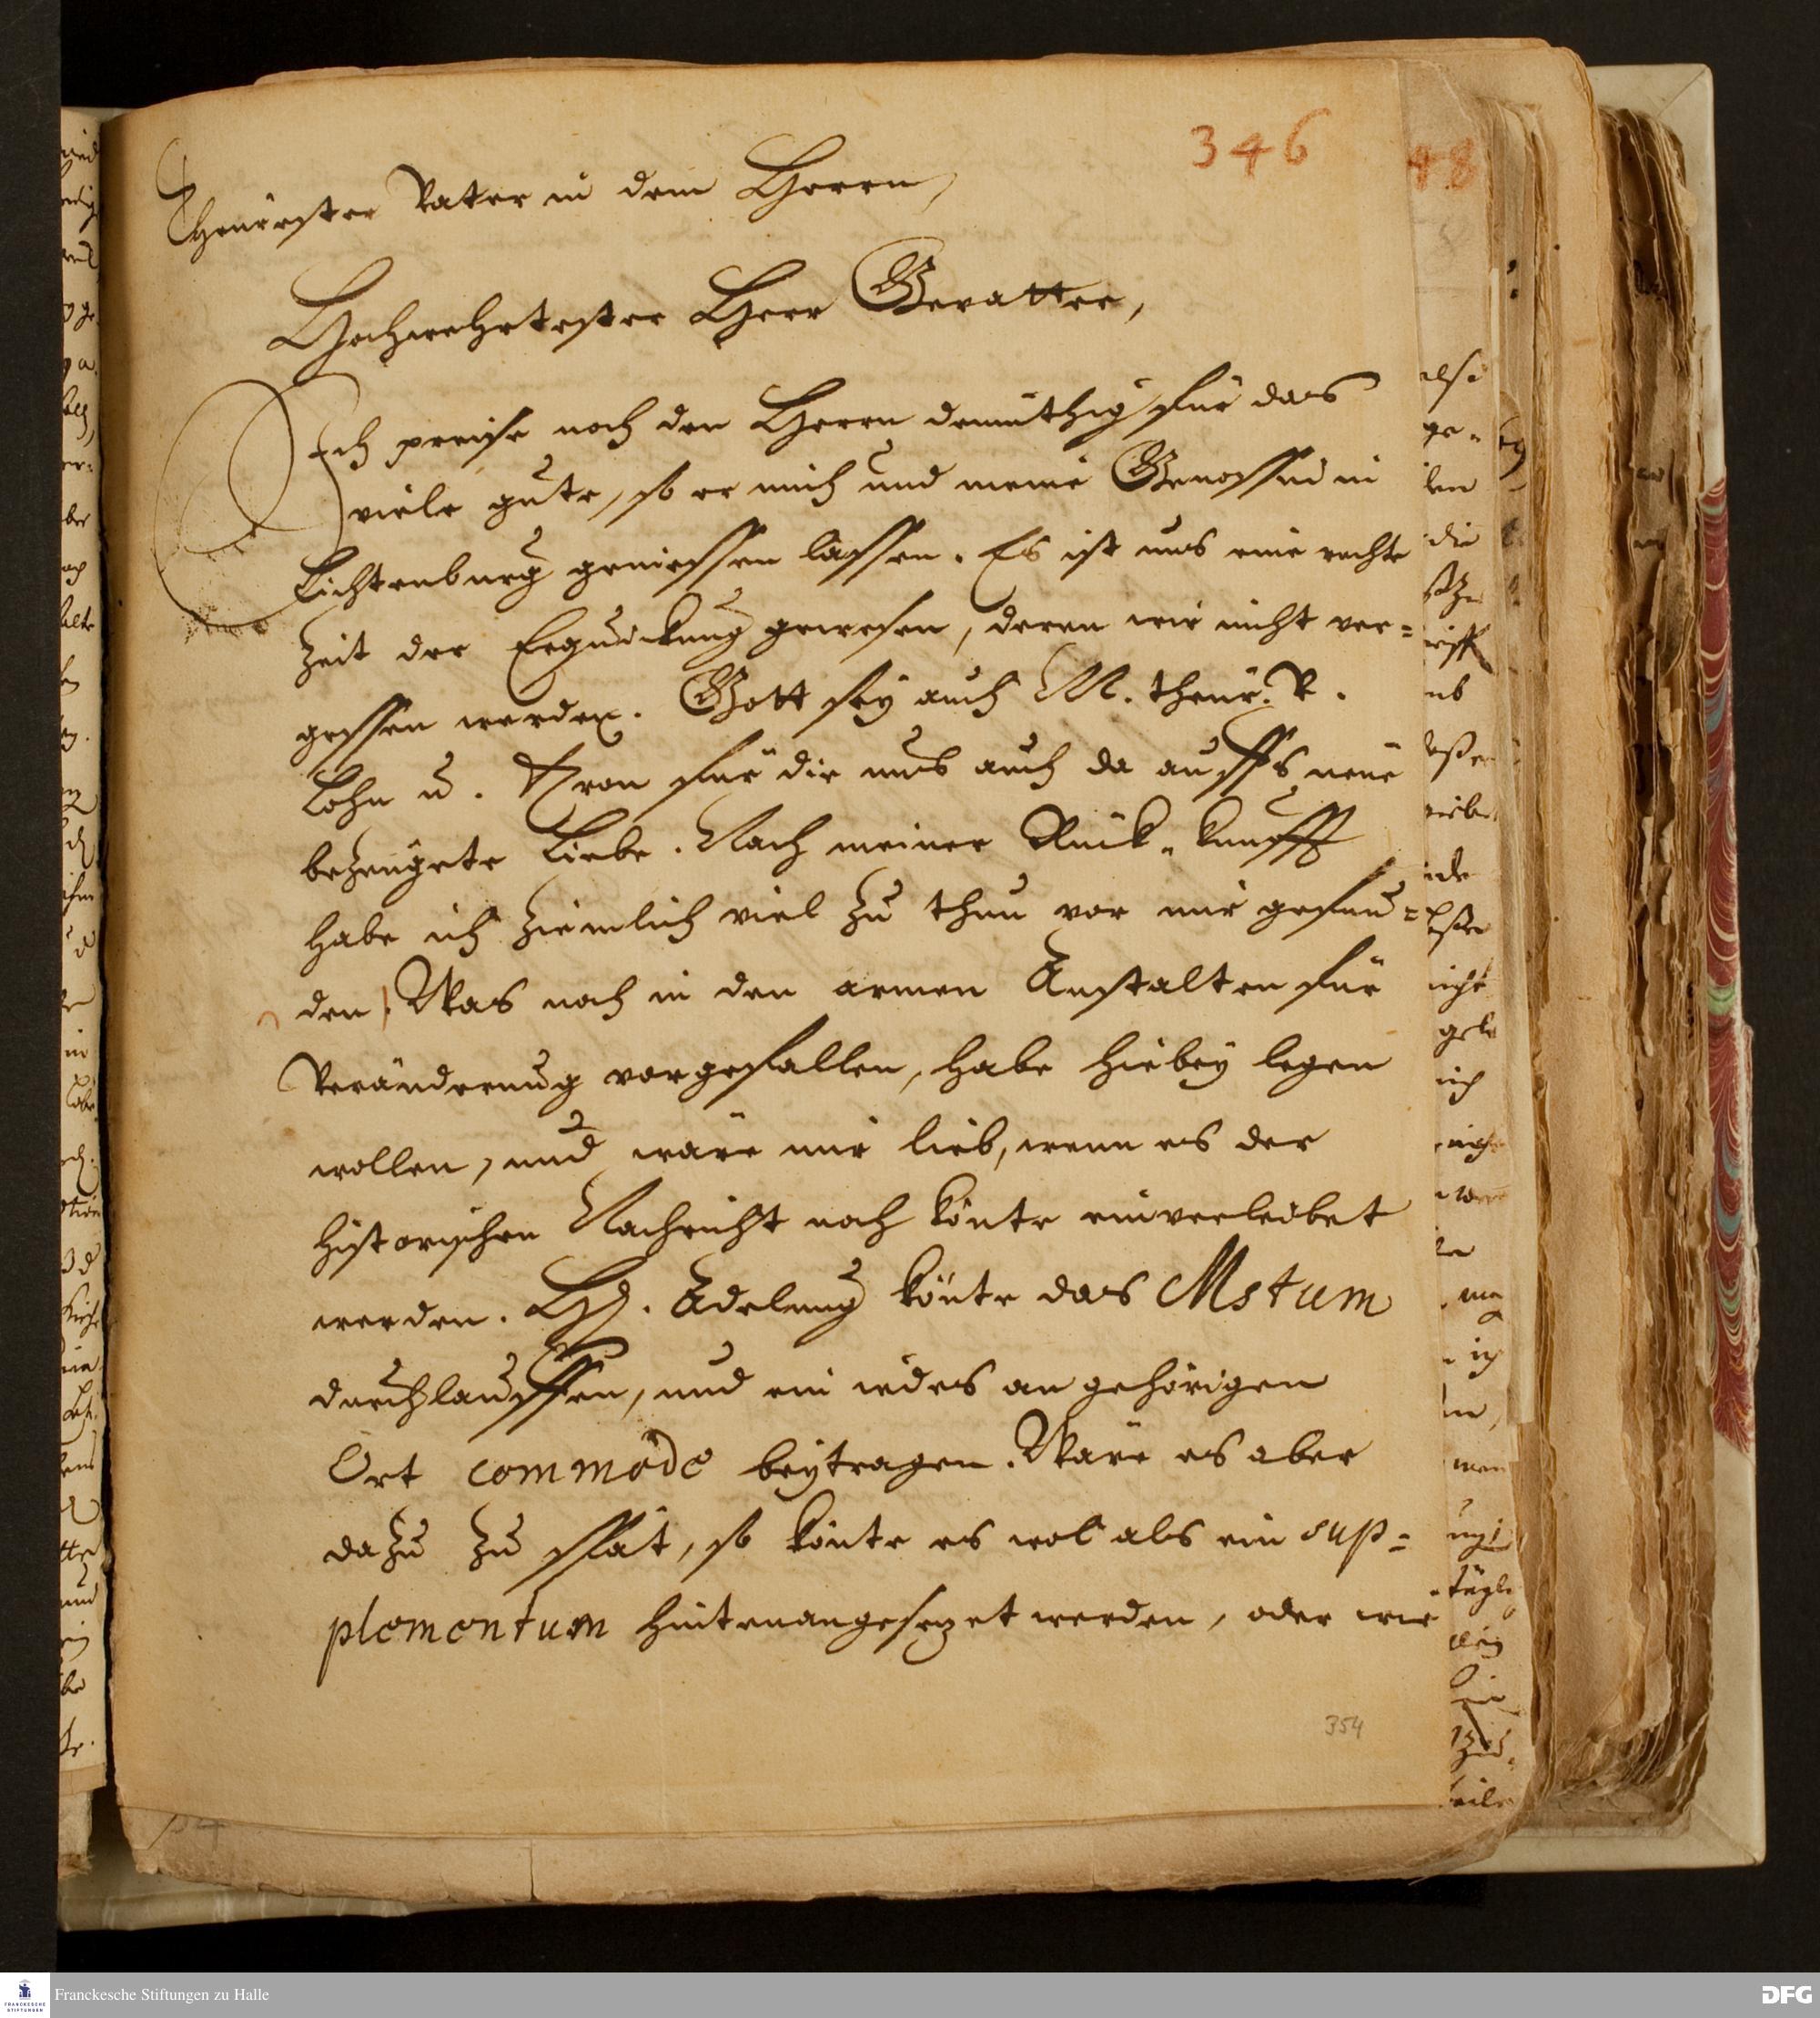 346
48
Theurester Vater in dem Herrn,
Hochwehrtester Herr Gevatter,
Ich preise noch den Herrn demüthig für das
viele gute, so er mich und meine Genossen in
Lichtenburg geniessen lassen. Es ist uns eine rechte
Zeit der Erquickung gewesen, deren wir nicht ver=
gessen werden. Gott sey auch M. theur. V.
Lohn u. Kron für die uns auch da auffs neue
bezeugete Liebe. Nach meiner Rück-kunfft
habe ich ziemlich viel zu thun vor mir gefun=
den. Was noch in den armen Anstalten für
Veränderung vorgefallen, habe hiebey legen
wollen, und wäre mir lieb, wenn es der
historischen Nachricht noch könte einverleibet
werden. Hr. Adelung könte das Mstum
durchlauffen, und ein iedes an gehörigen
Ort commode beytragen. Wäre es aber
dazu zu spät, so könte es wol als ein sup=
plementum hintenangesezet werden, oder wie
354
Franckesche Stiftungen zu Halle
DFG